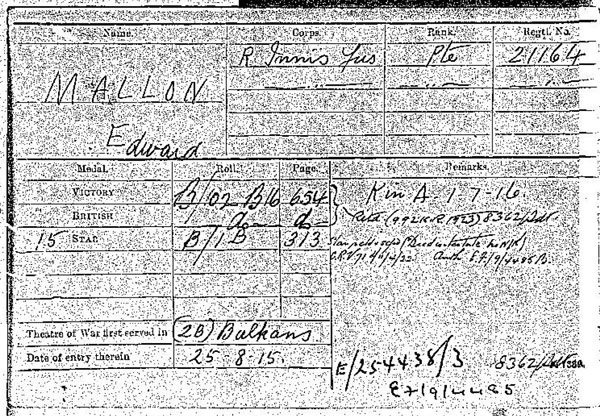 Name. Corps. Rank. Regtl. No.
MALLON R Innis Fus Pte 21164
Edward
Medal. Roll. Page. Remarks.
VICTORY B/102 B16 654 Kin A 1-7-16.
BRITISH do do (992 K.R. 1923) 8362/
15 STAR B/1B 313
Theatre of War first served in (2B) Balkans
Date of entry therein 25.8.15.
E/254438/3 8362/
E7/9/4485